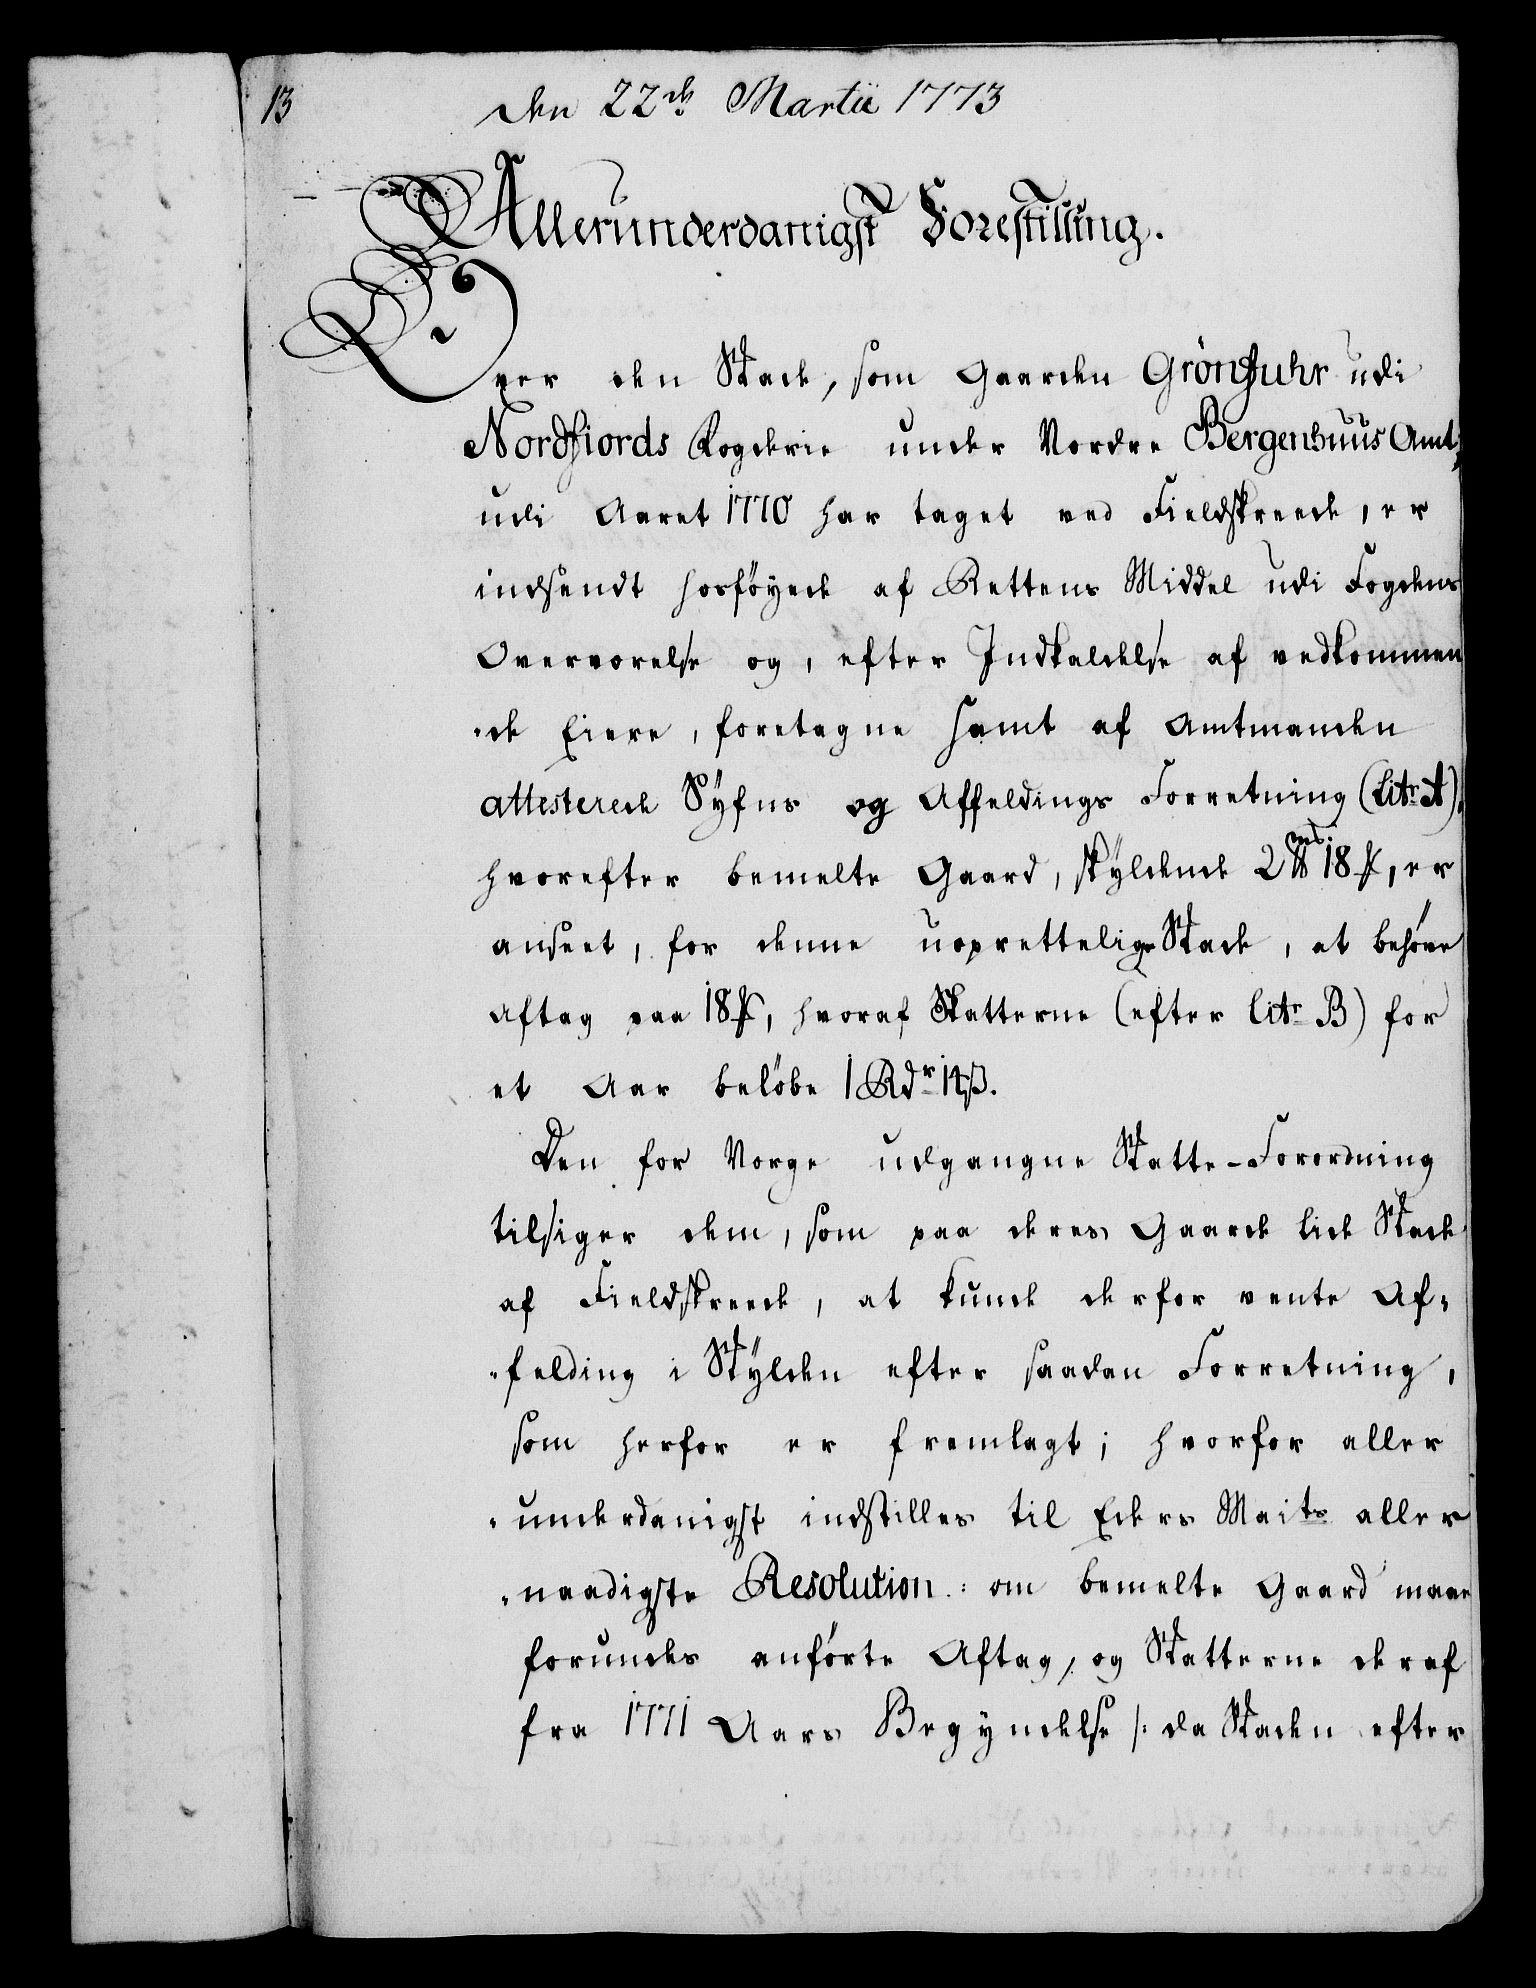 13
den 22de Martii 1773
Allerunderdanigst Forestilling.
Over den Skade, som Gaarden Grönfuhr udi
Nordfiords Fogderie under Nordre Bergenhuus Amt,
udi Aaret 1770 har taget ved Fieldskreede, er
indsendt hosföyede af Rettens Middel udi Fogdens
Overværelse og, efter Indkaldelse af vedkommen
-de Eiere, foretagne samt af Amtmanden
attesterede Syfns og Affeldings Forretning (Litr. A).
hvorefter bemelte Gaard, skyldende 2 18 , er
anseet, for denne uoprettelige Skade, at behöve
Aftag paa 18 , hvoraf Skatterne (efter Litr B) for
et Aar belöbe 1 Rdr 14 ß.
Den for Norge udgangne Skatte-Forordning
tilsiger dem, som paa deres Gaarde lide Skade
af Fieldskreede, at kunde derfor vente Af-
-felding i Skylden efter saadan Forretning,
som herfor er fremlagt; hvorfor aller
-underdanigst indstilles til Eders Maits aller
-naadigste Resolution: om bemelte Gaard maae
forundes anförte Aftag, og Skatterne deraf
fra 1771 Aars Begyndelse /: da Skaden efter